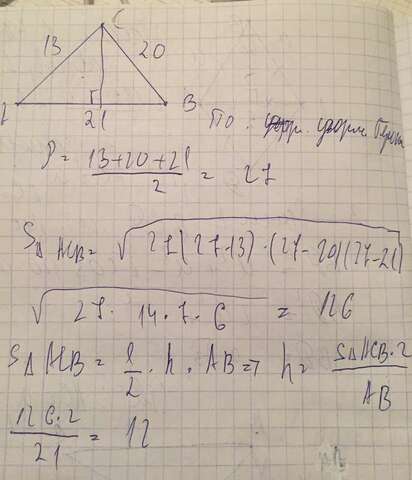 C
13 20
B
21
По форм. Герона
P = 13+20+21 / 2 = 27
S△ ACB = √27(27-13)·(27-20)(27-21)
√27· 14·7·6 = 126
S△ ACB = 1/2 · h · AB => h = S△ ACB·2 / AB
126·2 / 21 = 12